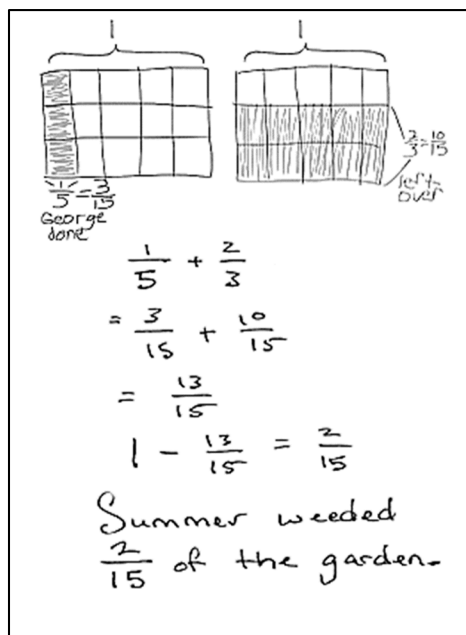 1 1
1/5 = 3/15
George
done
2/3 = 10/15
left-
over
1/5 + 2/3
= 3/15 + 10/15
= 13/15
1 - 13/15 = 2/15
Summer weeded
2/15 of the garden.